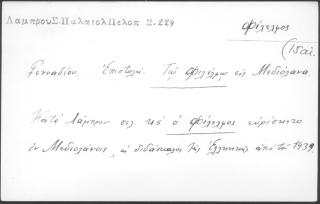 Λαμπρου Σ. Παλαιολ Πελοπ 2.224
Φίλελφος
(15 αἰ.
Γενναδίου. Ἐπιστολή. Τῷ Φιλέλφῳ εἰς Μεδιόλανα.
Κατὰ Λάμπρον σελ. κς' ὁ Φίλελφος εὑρίσκετο
ἐν Μεδιολάνοις, ὡς διδάσκαλος τῆς Ἑλληνικῆς ἀπὸ τοῦ 1439.